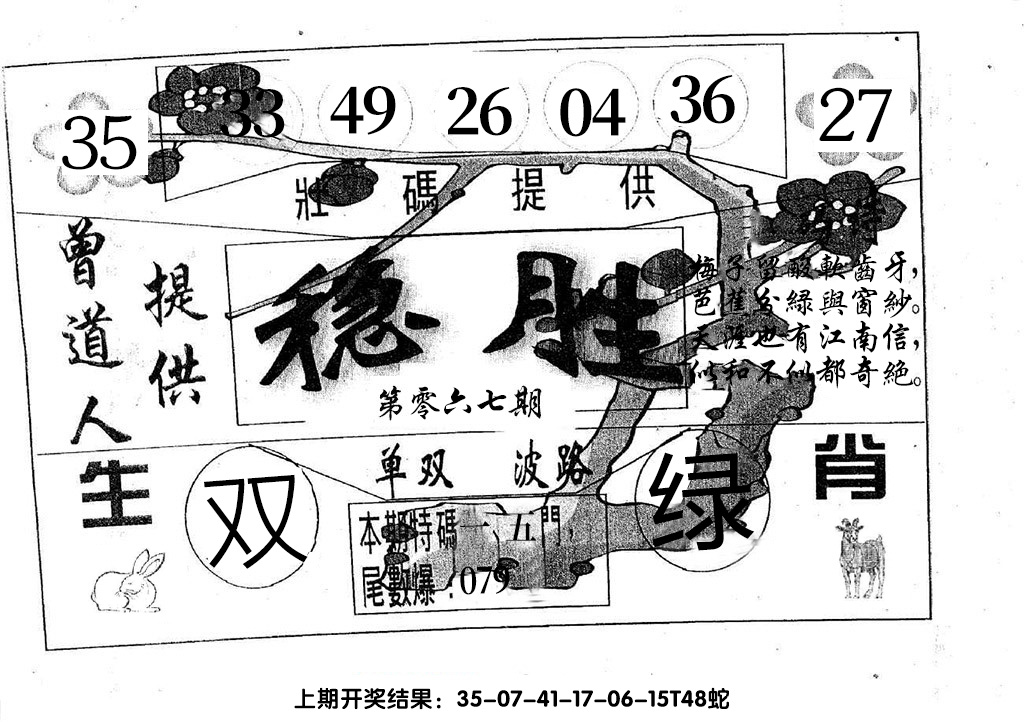 35 33 49 26 04 36 27
壯碼提供
曾道人
提供
特
梅子留酸軟齒牙，
芭蕉分綠與窗紗。
天涯也有江南信，
似和不似都奇絕。
稳胜
第零六七期
单双 波路
生肖
双
绿
本期特碼一、五門，
尾數爆：079
上期开奖结果：35-07-41-17-06-15T48蛇